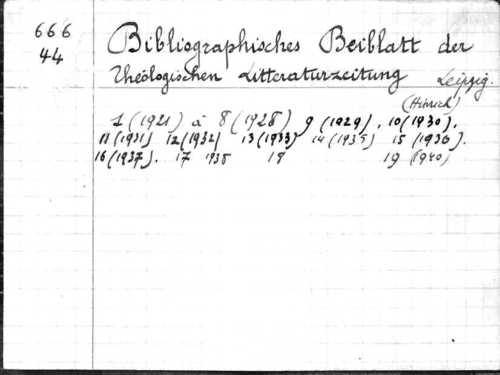 666
44
Bibliographisches Beiblatt der
Theologischen Litteraturzeitung Leipzig.
(Hinrich)
1 (1921) à 8 (1928) 9 (1929), 10 (1930).
11 (1931) 12 (1932) 13 (1933) 14 (1935) 15 (1936).
16 (1937). 17 1938 18 19 (1940)